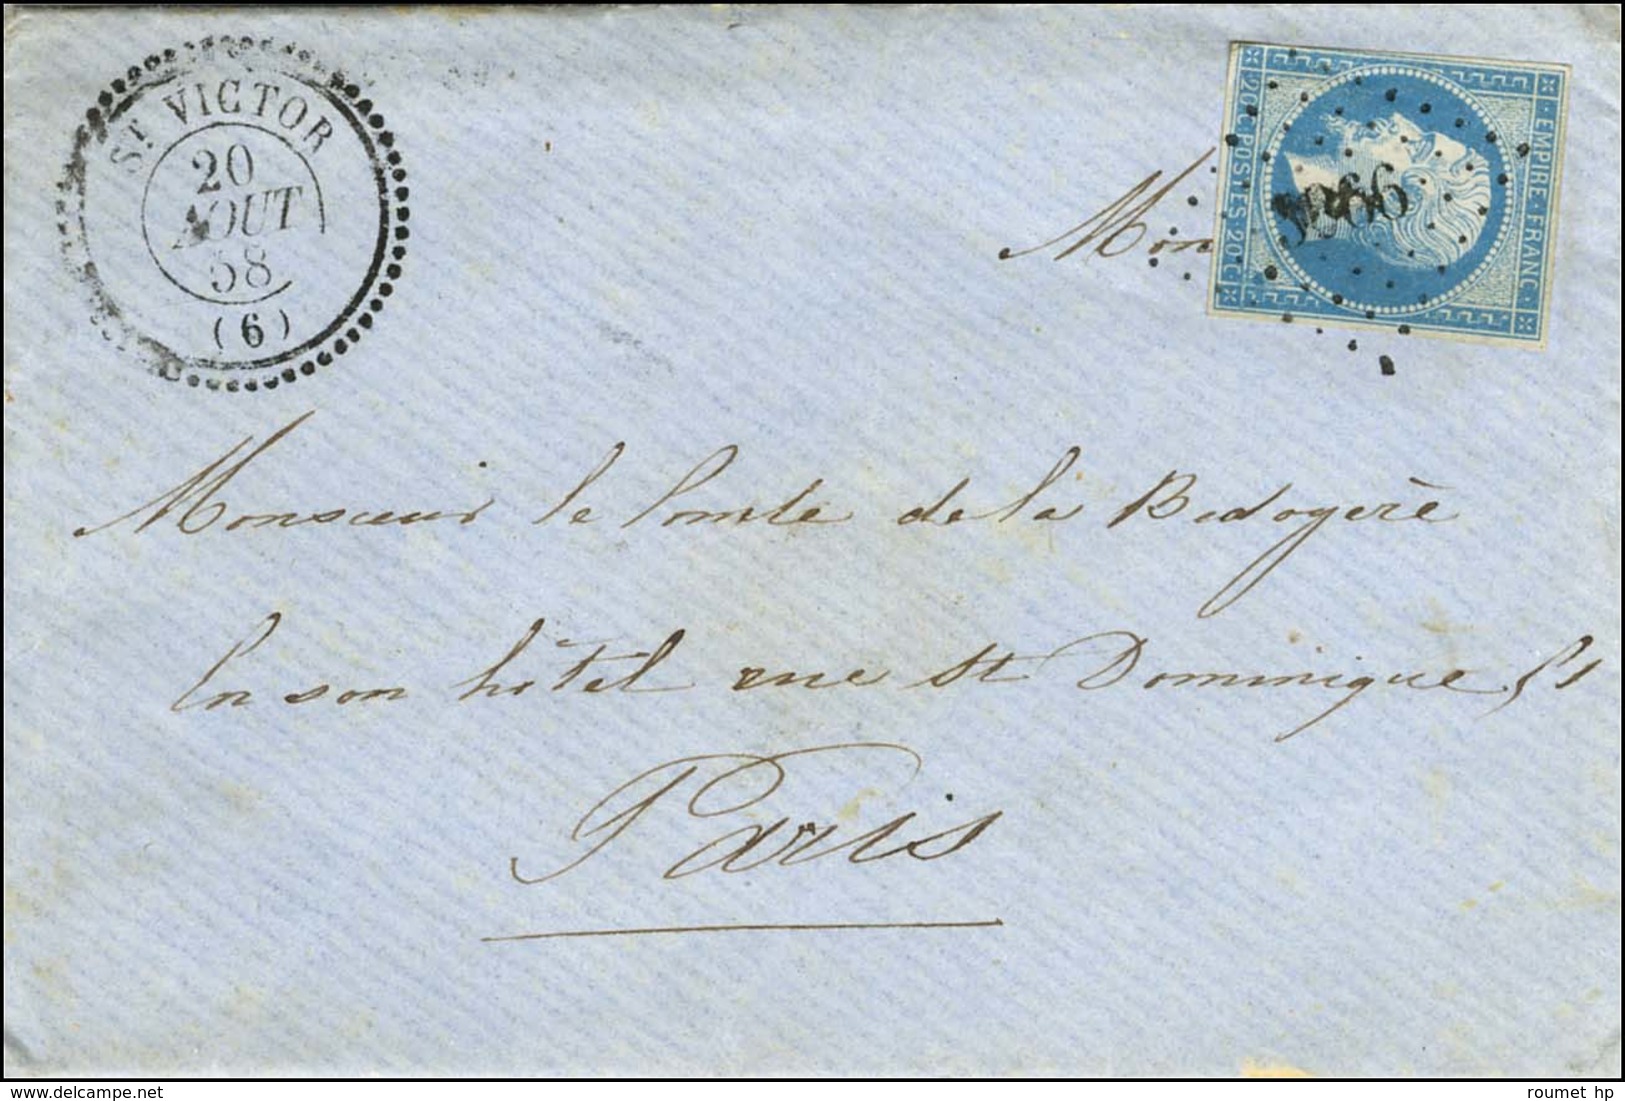 ST VICTOR
20
AOUT
58
(6)
EMPIRE FRANC
20 C POSTES 20 C
Mon
Monsieur le Comte de la Bedoyère
En son hôtel rue St Dominique
Paris
Delcampe.net
roumet hp